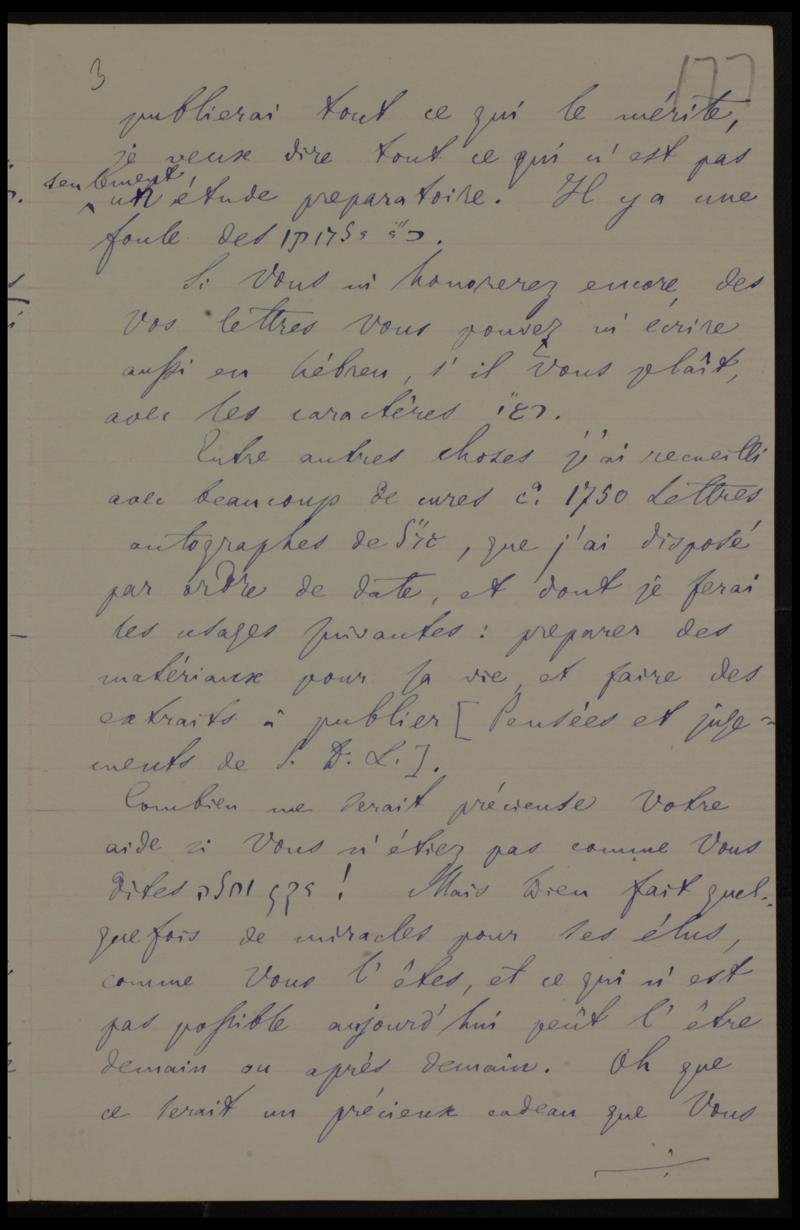 3 177
publierai tout ce qui le mérite,
je veux dire tout ce qui n'est pas
seulement un étude preparatoire. Il y a une
foule des
Si Vous m'honorerez encore des
Vos lettres Vous pouvez m'écrire
aussi en hébreu, s'il Vous plaît,
avec les caractères
Entre autres choses j'ai recueilli
avec beaucoup de cures ca. 1750 Lettres
autographes de שד״ל, que j'ai disposé
par ordre de date, et dont je ferai
les usages suivantes : preparer des
matériaux pour sa vie, et faire des
extraits à publier [Pensées et juge=
ments de S. D. L.].
Combien me serait précieuse Votre
aide si Vous n'étiez pas comme Vous
dites !  Mais Dieu fait quel-
quefois de miracles pour ses élus,
comme Vous l'êtes, et ce qui n'est
pas possible aujourd'hui peût l'être
demain ou après demain. Oh que
ce serait un précieux cadeau que Vous